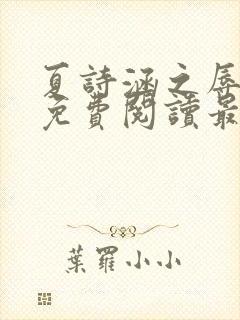 夏詩涵之辱
免費閱讀最
葉羅小小